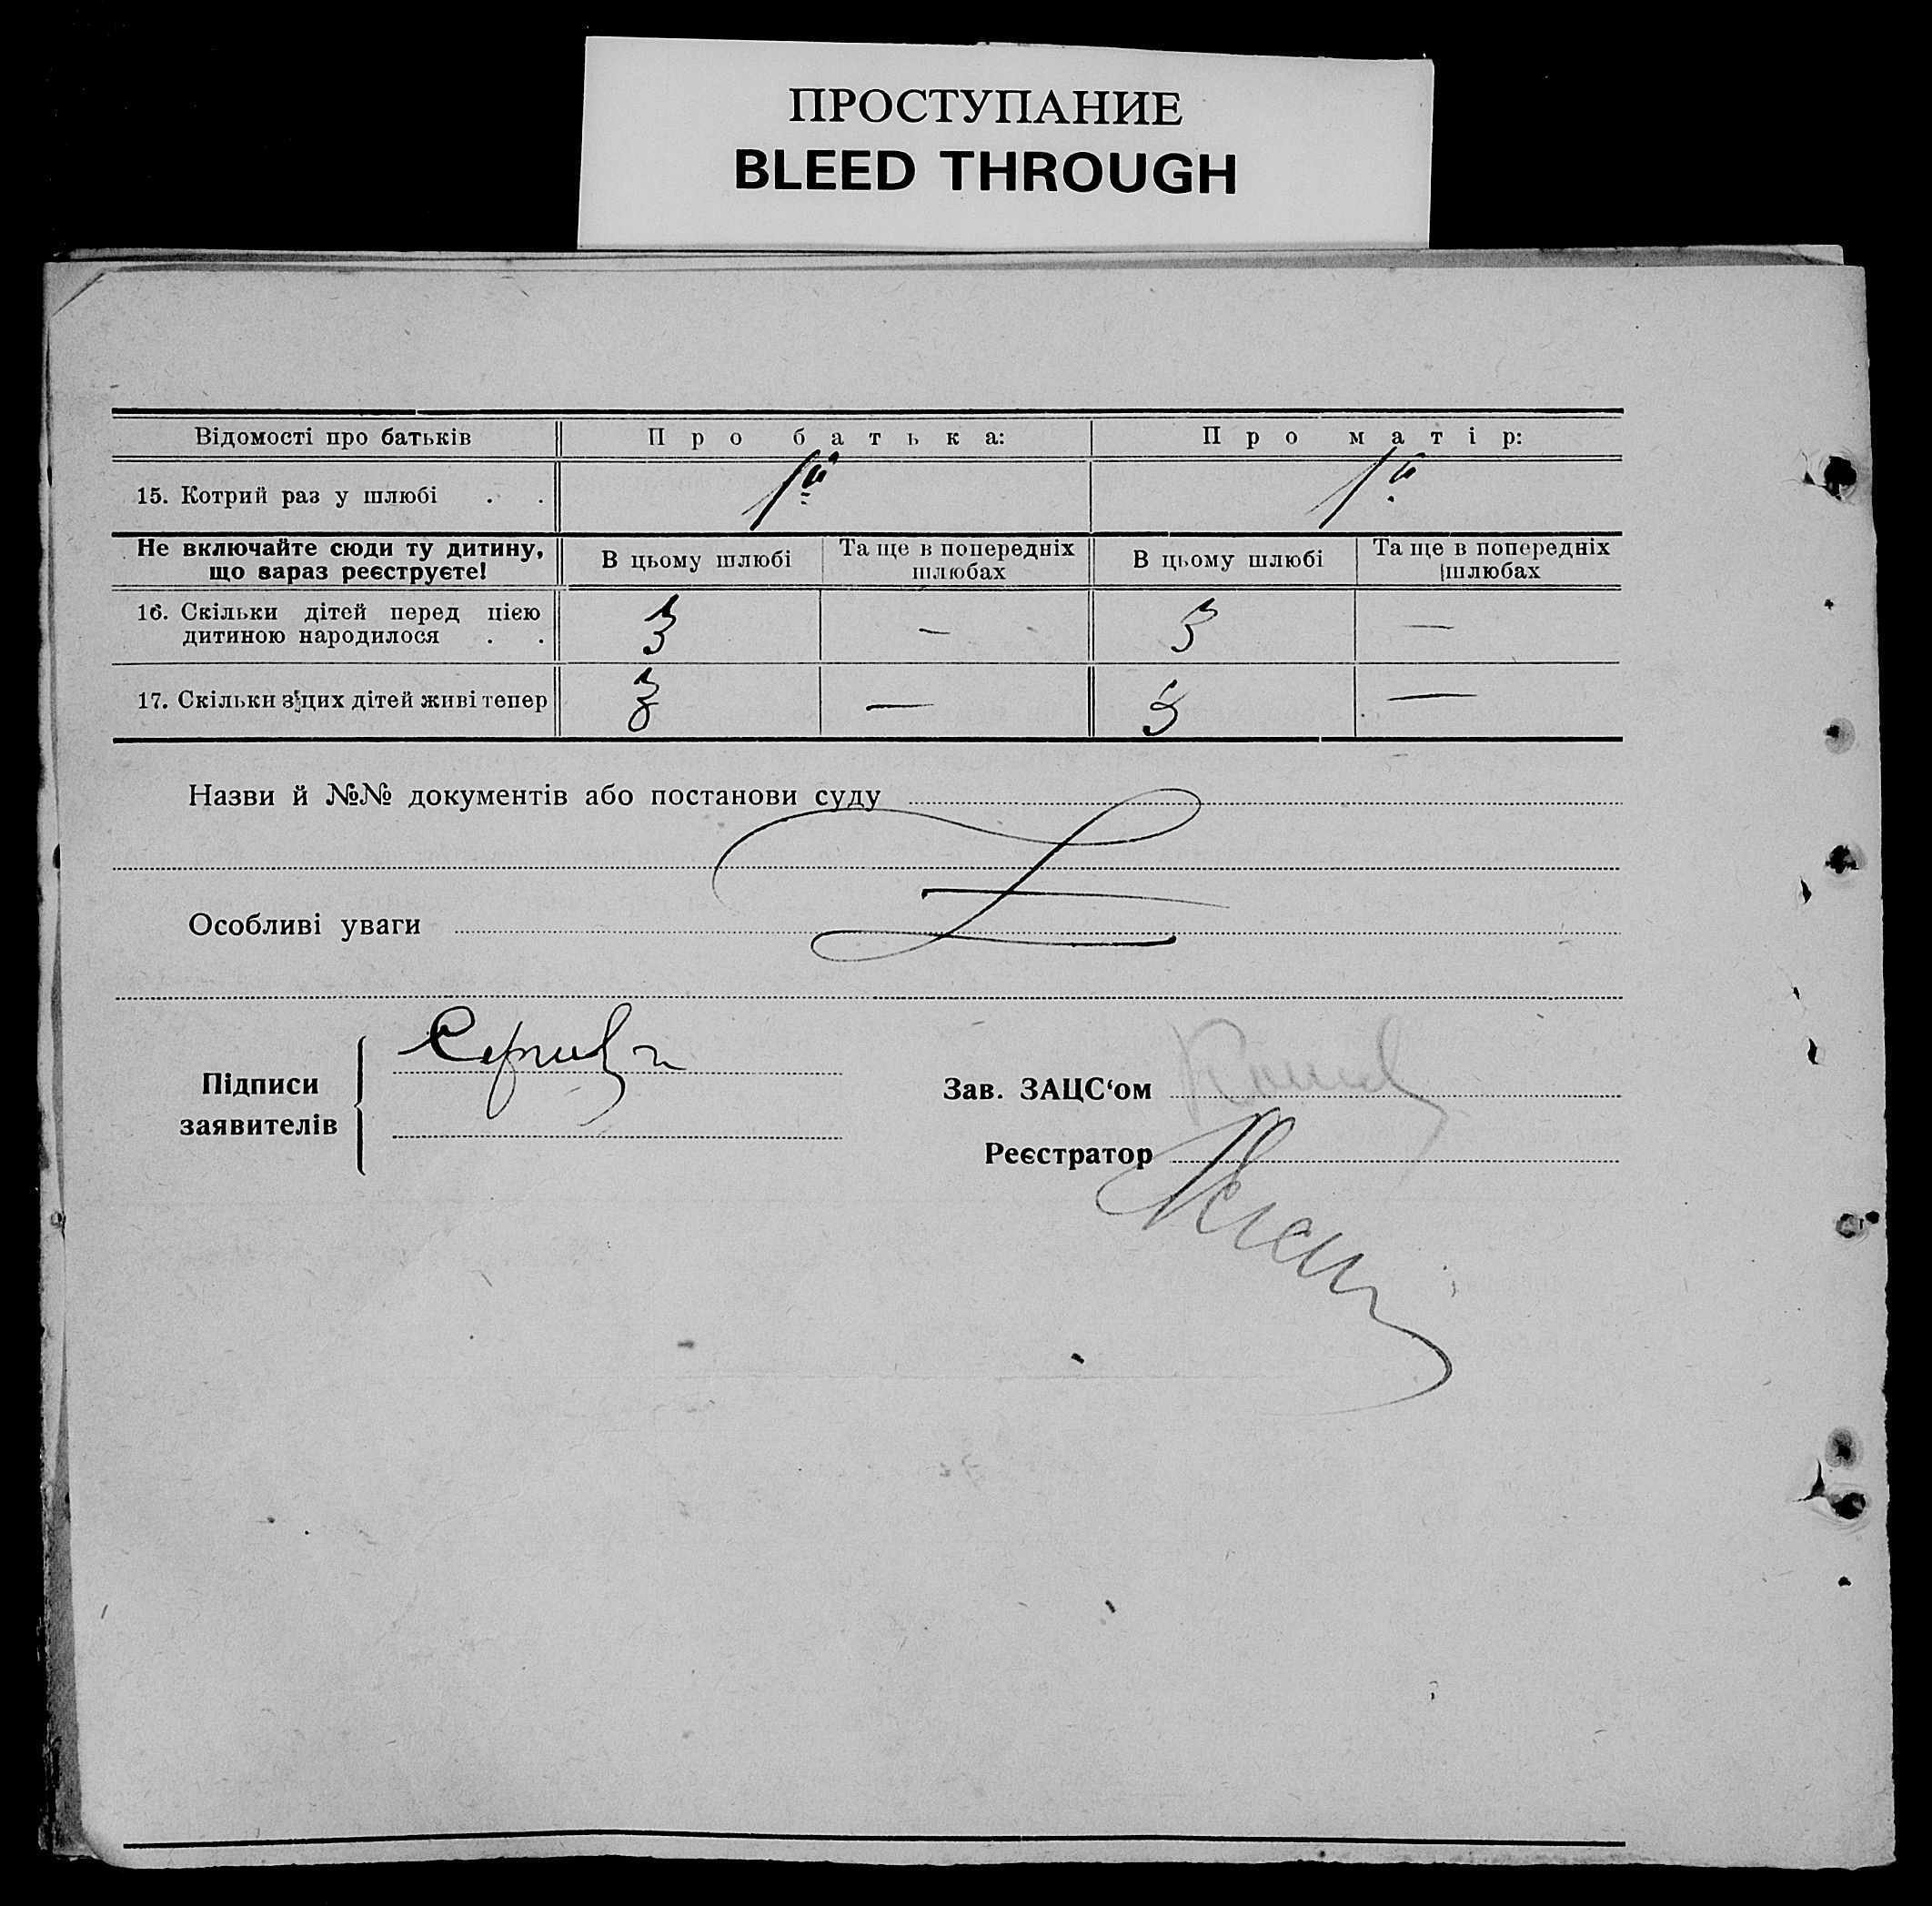 ПРОСТУПАНИЕ
BLEED THROUGH
Відомості про батьків Про батька: Про матір:
15. Котрий раз у шлюбі . . 1й 1й
Не включайте сюди ту дитину, що зараз реєструєте! В цьому шлюбі Та ще в попередніх шлюбах В цьому шлюбі Та ще в попередніх шлюбах
16. Скільки дітей перед цією дитиною народилося . . 3 — 3 —
17. Скільки з цих дітей живі тепер 3 — 3 —
Назви й №№ документів або постанови суду
Особливі уваги
Підписи заявителів
Зав. ЗАЦС‘ом
Реєстратор